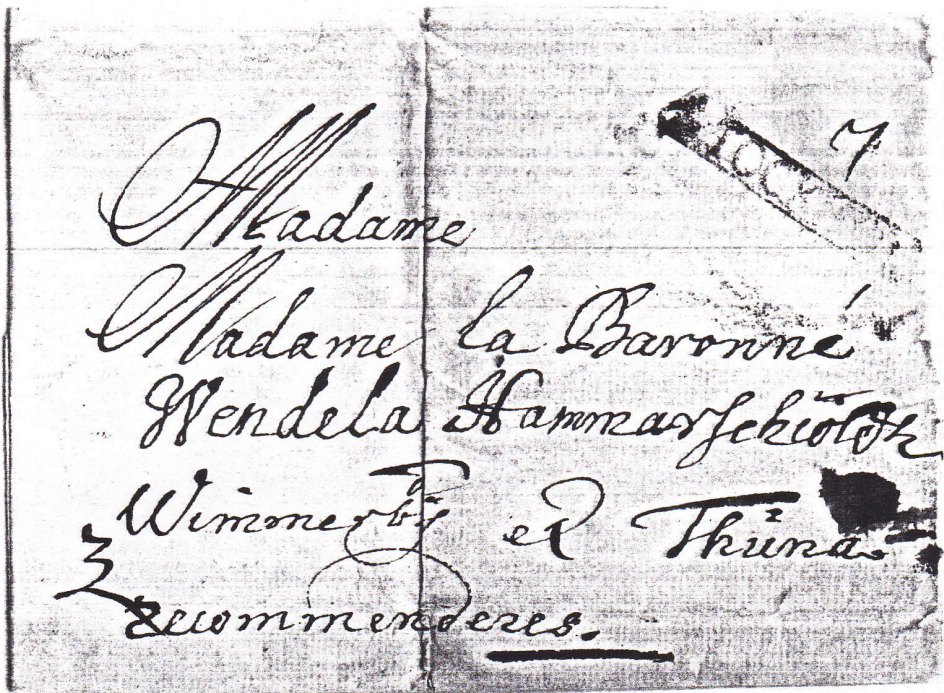 7
Madame
Madame la Baronné
Wendela Hammarschiöldh
Wimmerbÿ et Thüna
Recommenderes.